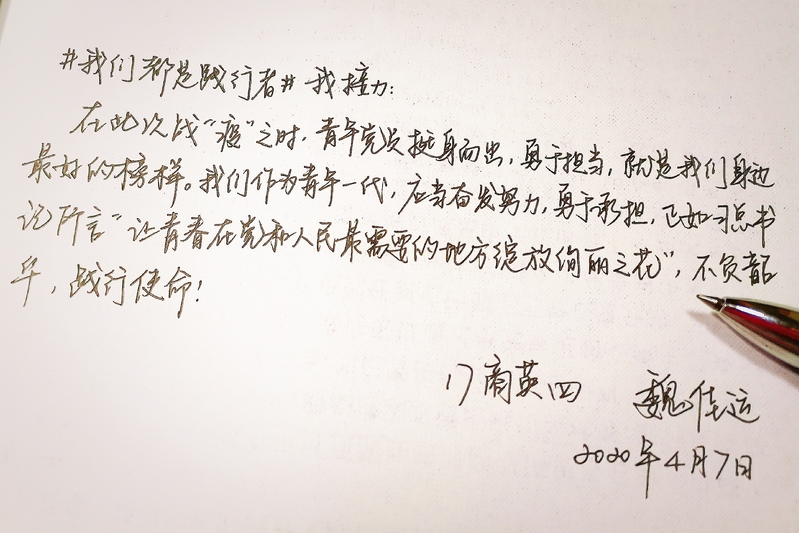 #我们都是践行者# 我接力:
在此次战“疫”之时，青年党员挺身而出，勇于担当，就是我们身边
最好的榜样。我们作为青年一代，应当奋发努力，勇于承担，正如习总书
记所言“让青春在党和人民最需要的地方绽放绚丽之花”，不负韶
华，践行使命！
17商英四 魏佳运
2020年4月7日